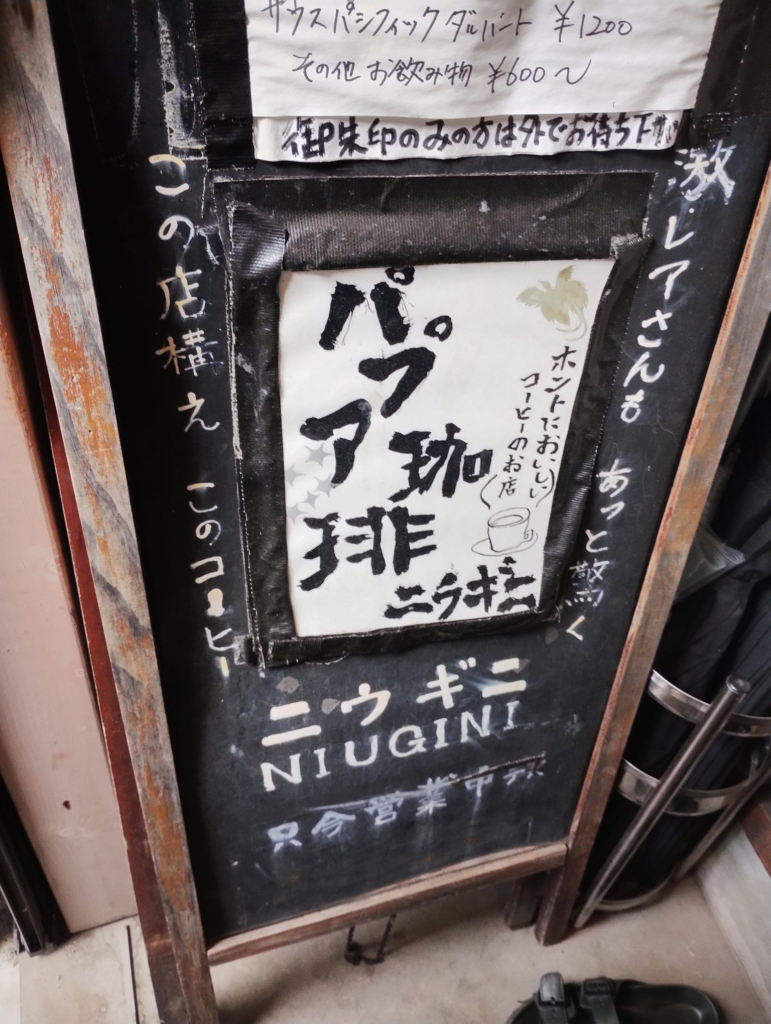 サウスパシフィックダルバート ¥1200
その他 お飲み物 ¥600〜
御朱印のみの方は外でお待ち下さい
激レアさんも あっと驚く
この店構え このコーヒー
ホントにおいしい
コーヒーのお店
パプア
珈琲
ニウギニ
ニウギニ
NIUGINI
只今営業中デス